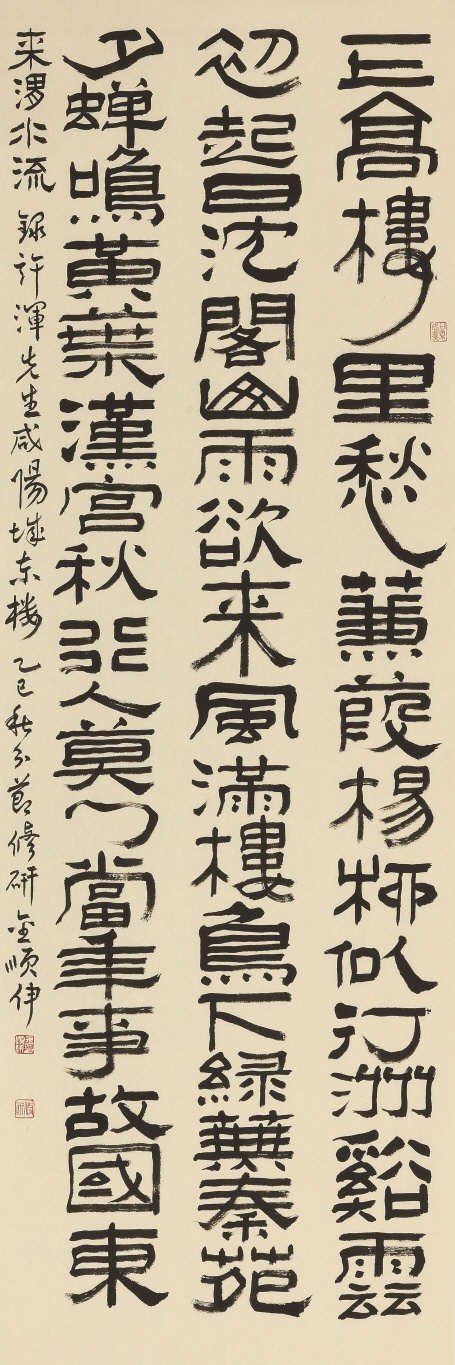 一上高樓万里愁蒹葭楊柳似汀洲谿雲
初起日沈閣山雨欲来風滿樓鳥下綠蕪秦苑
夕蟬鳴黃葉漢宮秋行人莫问當年事故國東
来渭水流 録許渾先生咸陽城东楼 乙巳秋分節修研金順伊